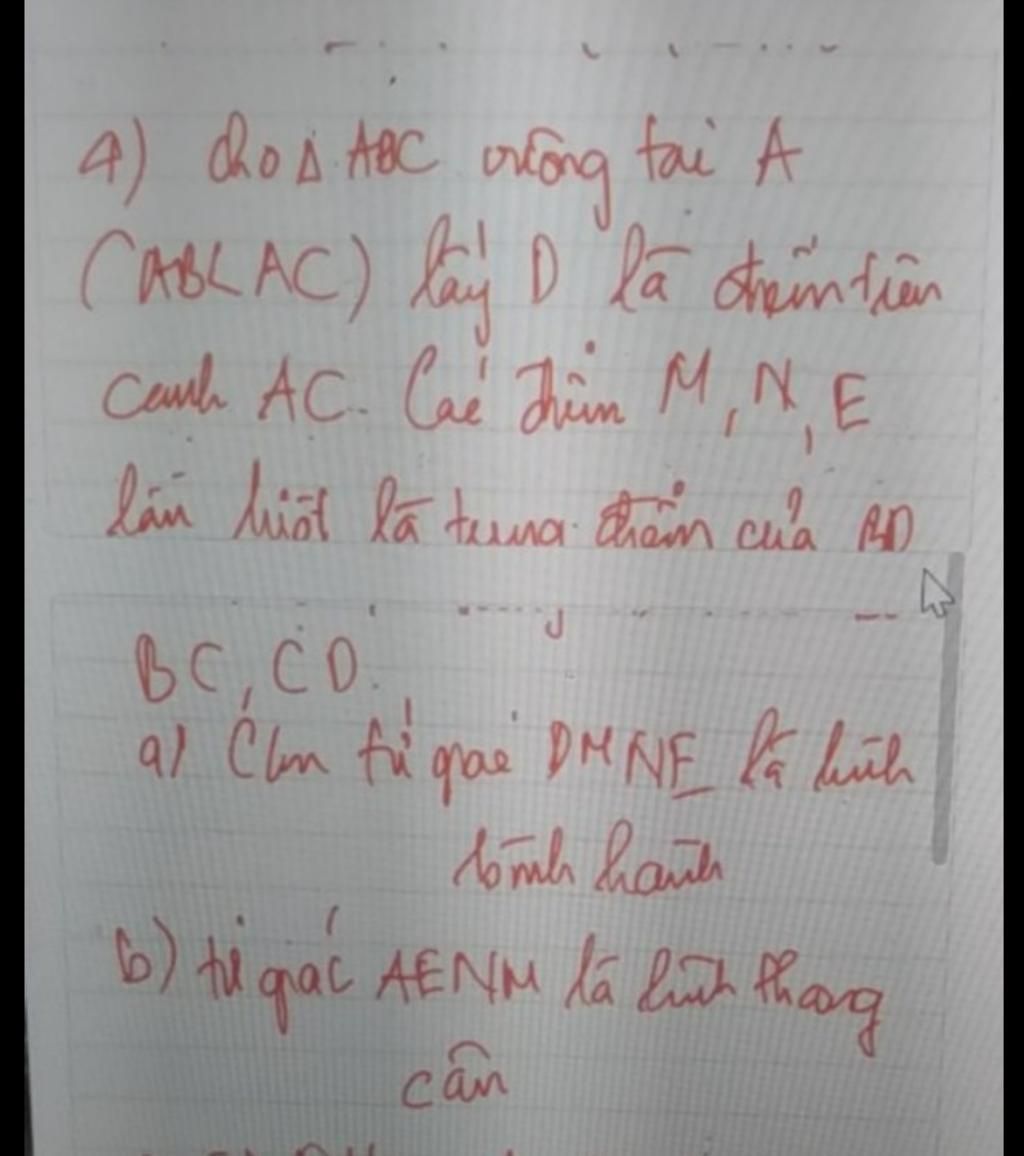 4) Cho Δ ABC vuông tại A
(AB<AC) lấy D là điểm trên
cạnh AC. Các điểm M, N, E
lần lượt là trung điểm của BD
BC, CD.
a) Cm tứ giác DMNE là hình
bình hành
b) tứ giác AENM là hình thang
cân